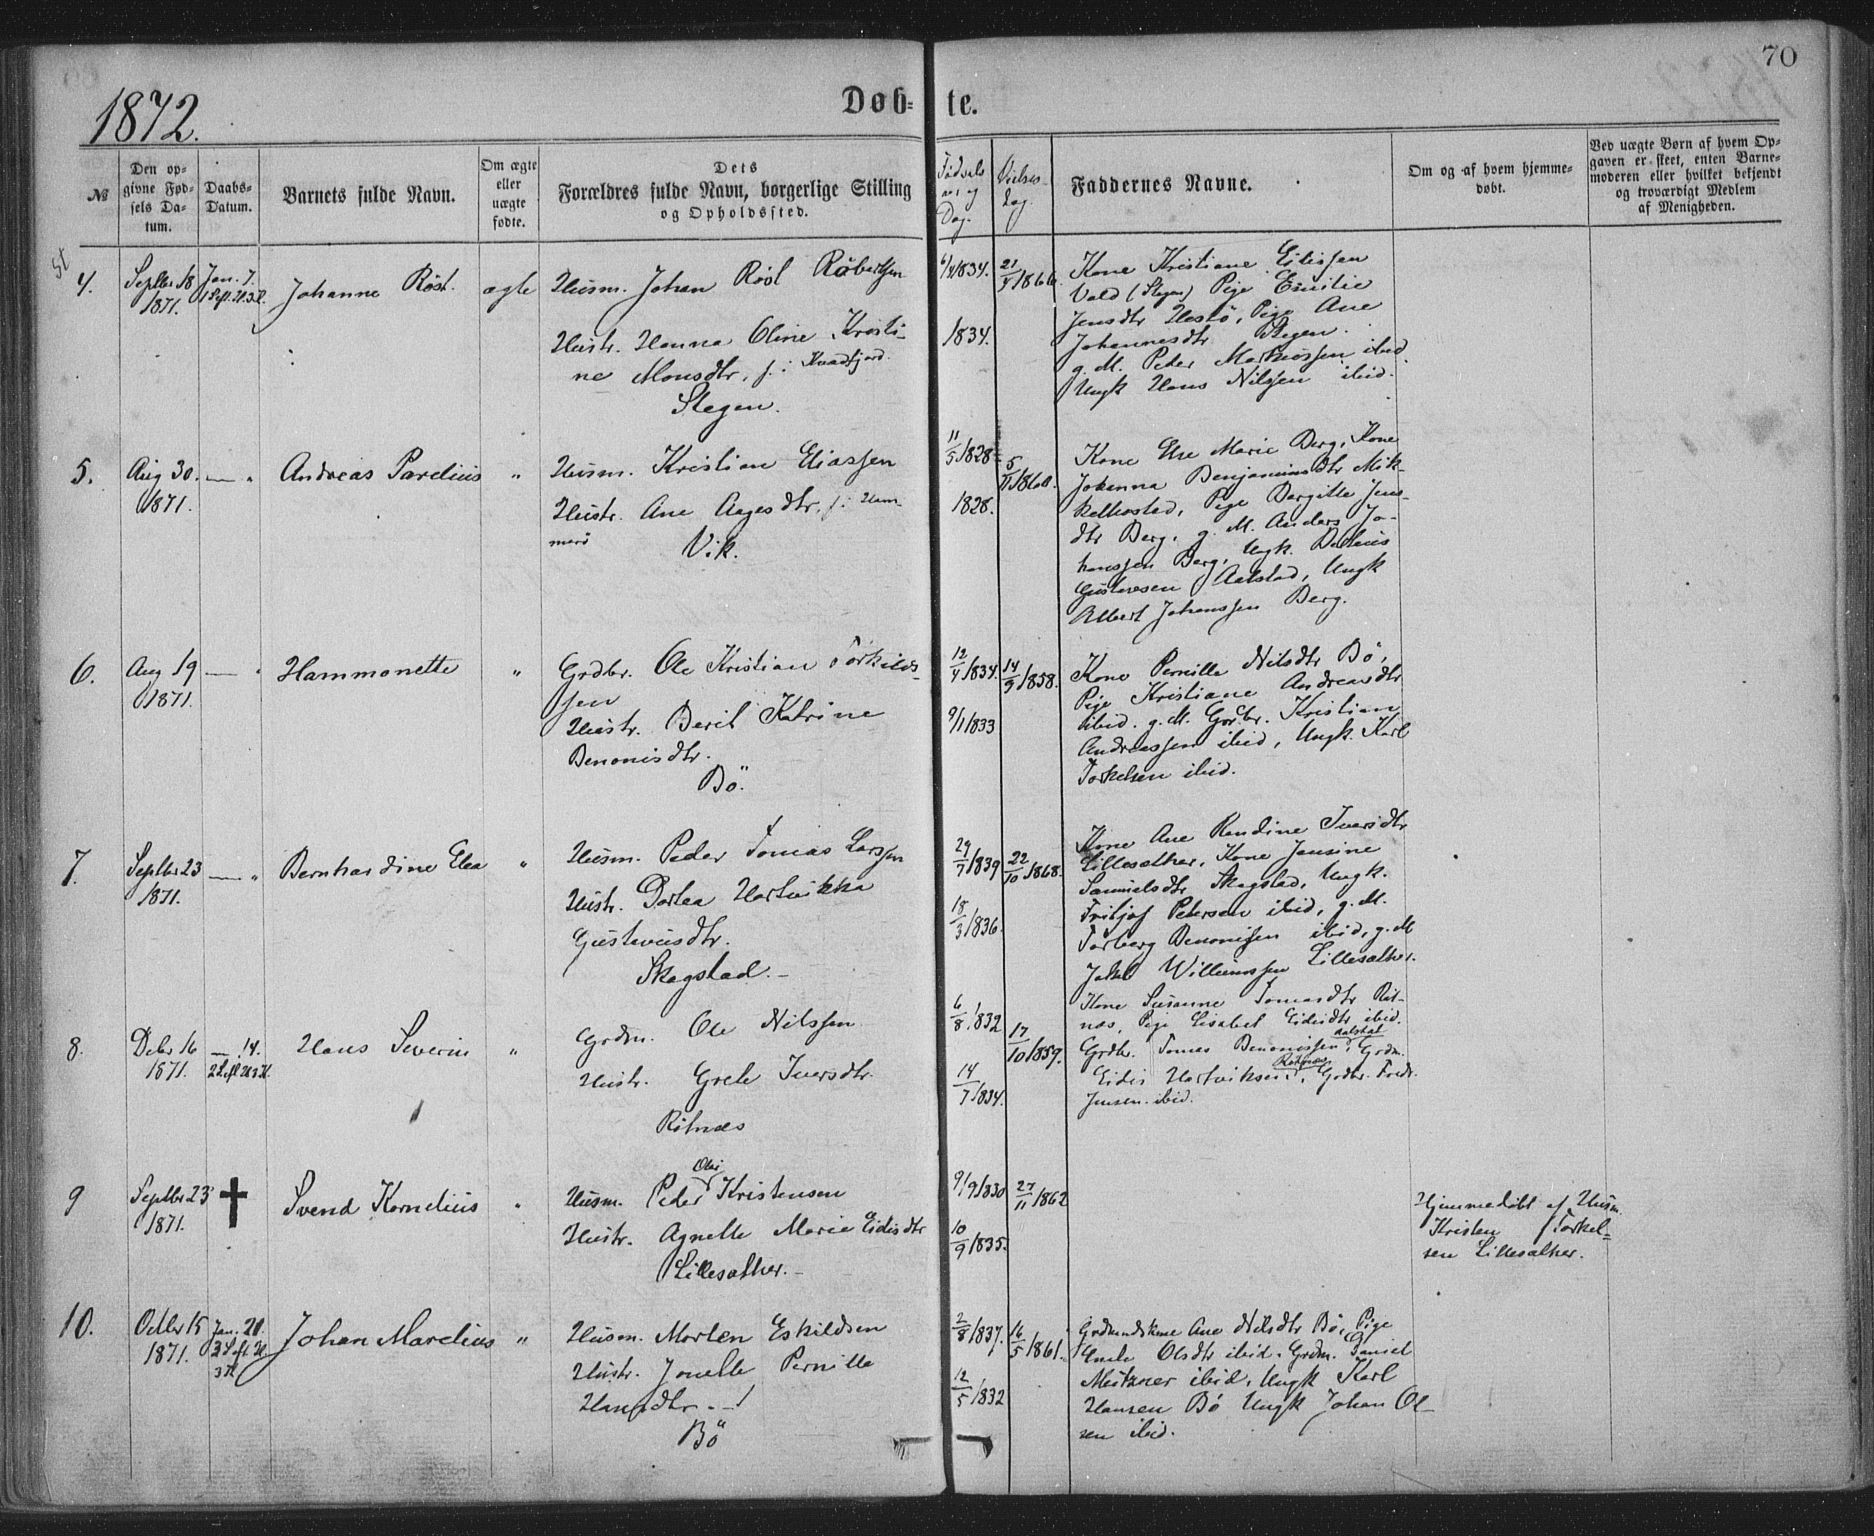 70
1872.
Døb- te.
№
Den op-
givne Fød-
sels Da-
tum.
Daabs-
Datum.
Barnets fulde Navn.
Om ægte
eller
uægte
fødte.
Dets
Forældres fulde Navn, borgerlige Stilling
og Opholdssted.
Fødsels
og
Dag.
Vielses
Dag.
Faddernes Navne.
Om og af hvem hjemme-
døbt.
Ved uægte Børn af hvem Op-
gaven er skeet, enten Barne-
moderen eller hvilket bekjendt
og troværdigt Medlem
af Menigheden.
4.
Septbr 18
1871.
Jan. 7.
Johanne Röst.
ægte
Husm. Johan Röst Robertsen
Hustr. Hanna Oline Kristi-
ne Monsdtr. f. i Kvædfjord
Stegen.
6/4 1834.
1834.
21/9 1866.
Kone Kristiane Eilissen
Vold (Stegen) Pige Emilie
Jensdtr Hestö, Pige Ane
Johannesdtr Stegen.
g. M. Peder Markussen ibid
Ungk Hans Nilssen ibid.
5.
Aug 30.
1871.
— "
Andreas Parelius
"
Husm. Kristian Eliassen
Hustr. Ane Aagesdtr, f. i Ham-
merö
Vik.
11/5 1828
1828.
5/11 1860.
Kone Else Marie Berg, Kone
Johanna Benjaminsdtr Mik-
kelbostad, Pige Bergitte Jens-
dtr Berg, g. M. Anders Jo-
hanssen Berg, Ungk.
Gustavesen Aalstad, Ungk
Albert Johanssen Berg.
6.
Aug 19
1871.
— "
Hammonette
"
Grdbr. Ole Kristian Torkild-
sen
Hustr. Berit Katrine
Benonisdtr.
Bö.
12/4 1834.
9/1 1833
14/9 1858.
Kone Pernille Nilsdtr Bö,
Pige Kristiane Andreasdtr
ibid. g. M. Grdbr. Kristian
Andreassen ibid, Ungk. Karl
Torkelsen ibid.
7.
Septbr 23
1871.
— "
Bernhardine Elea
"
Husm. Peder Tomas Larssen
Hustr. Dortea Hartvikka
Gustavusdtr.
Skagstad.–
29/7 1839
18/3 1836.
22/10 1868.
Kone Ane Randine Iversdtr
Lillesather, Kone Jensine
Samuelsdtr Skagstad, Ungk.
Fritjof Petersen ibid, g. M.
Torberg Benonissen ibid, g. M
Jakob Willumssen Lillesather.
8.
Debr 16
1871.
— 14.
Hans Severin
"
Grdm. Ole Nilssen
Hustr. Grete Iversdtr.
Rötnæs
6/8 1832
14/7 1834.
17/10 1859.
Kone Susanne Tomasdtr Röt-
næs, Pige Lisabet Eidisdtr ibid.
Aalstad
Grdbr. Tomas Benonissen, Grdm.
Rötnæs
Eidis Hartviksen, Grdbr. Fredr.
Jensen ibid.
9
Septbr 23
1871.
†
Svend Kornelius
"
Olai
Husm. Peder Kristensen
Hustr. Agnette Marie Eidisdtr
Lillesather.–
9/9 1830
10/9 1835.
27/11 1862
Hjemmedöbt af Husm.
Kristen Torkel-
sen Lillesather.
10.
Octbr 15
1871.
Jan. 21.
Johan Marelius
"
Husm. Morten Eskildsen
Hustr. Jonette Pernille
Hansdtr.
Bö
2/8 1837.
12/5 1832
16/5 1861.
Grdmandskone Ane Nilsdtr Bö, Pige
Emile Olsdtr ibid. Grdm. Daniel
ibid, Ungk Karl
Hansen Bö Ungk Johan Ol-
sen ibid.